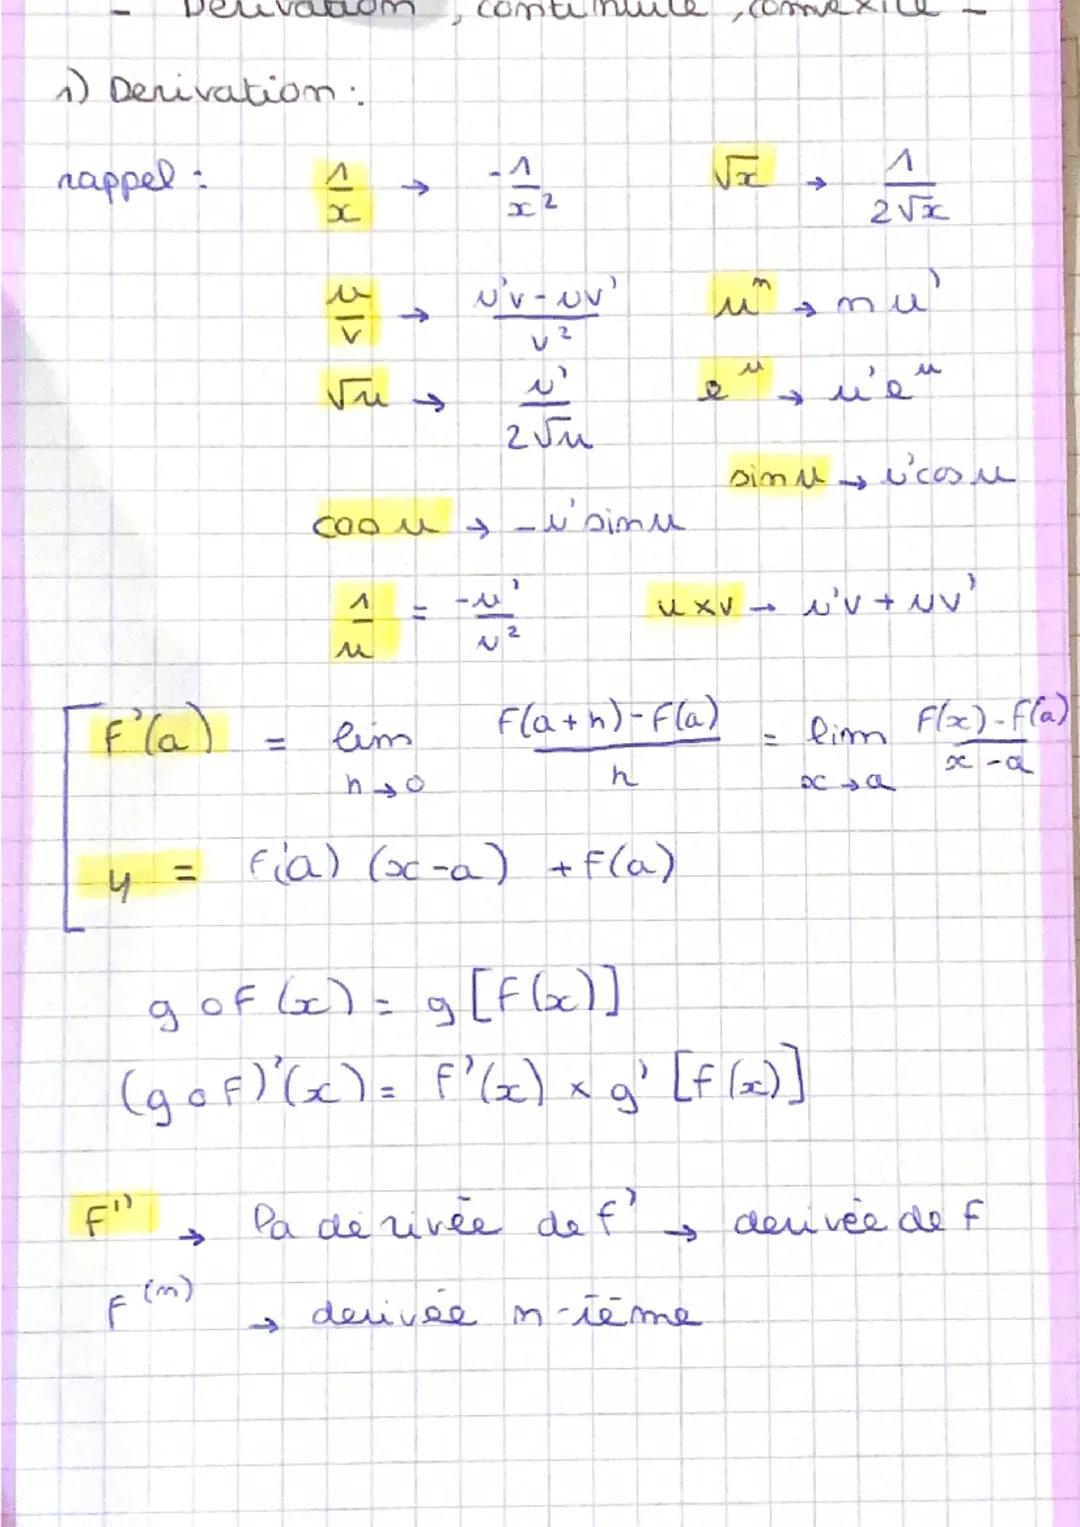 - Derivation, continuité, convexité -
1) Derivation :
rappel : 1/x → -1/x² √x → 1/2√x
u/v → u'v-uv'/v² uⁿ → nu'
√u → u'/2√u eᵘ → u'eᵘ
sin u → u'cos u
cos u → -u'sin u
1/u = -u'/u² u×v → u'v+uv'
F'(a) = lim h→0 F(a+h)-F(a)/h = lim x→a F(x)-F(a)/x-a
y = F'(a) (x-a) + F(a)
g o F (x) = g [F(x)]
(g o F)'(x) = F'(x) × g' [f(x)]
F'' → la dérivée de f' → derivée de F
F⁽ⁿ⁾ → derivée n-ième